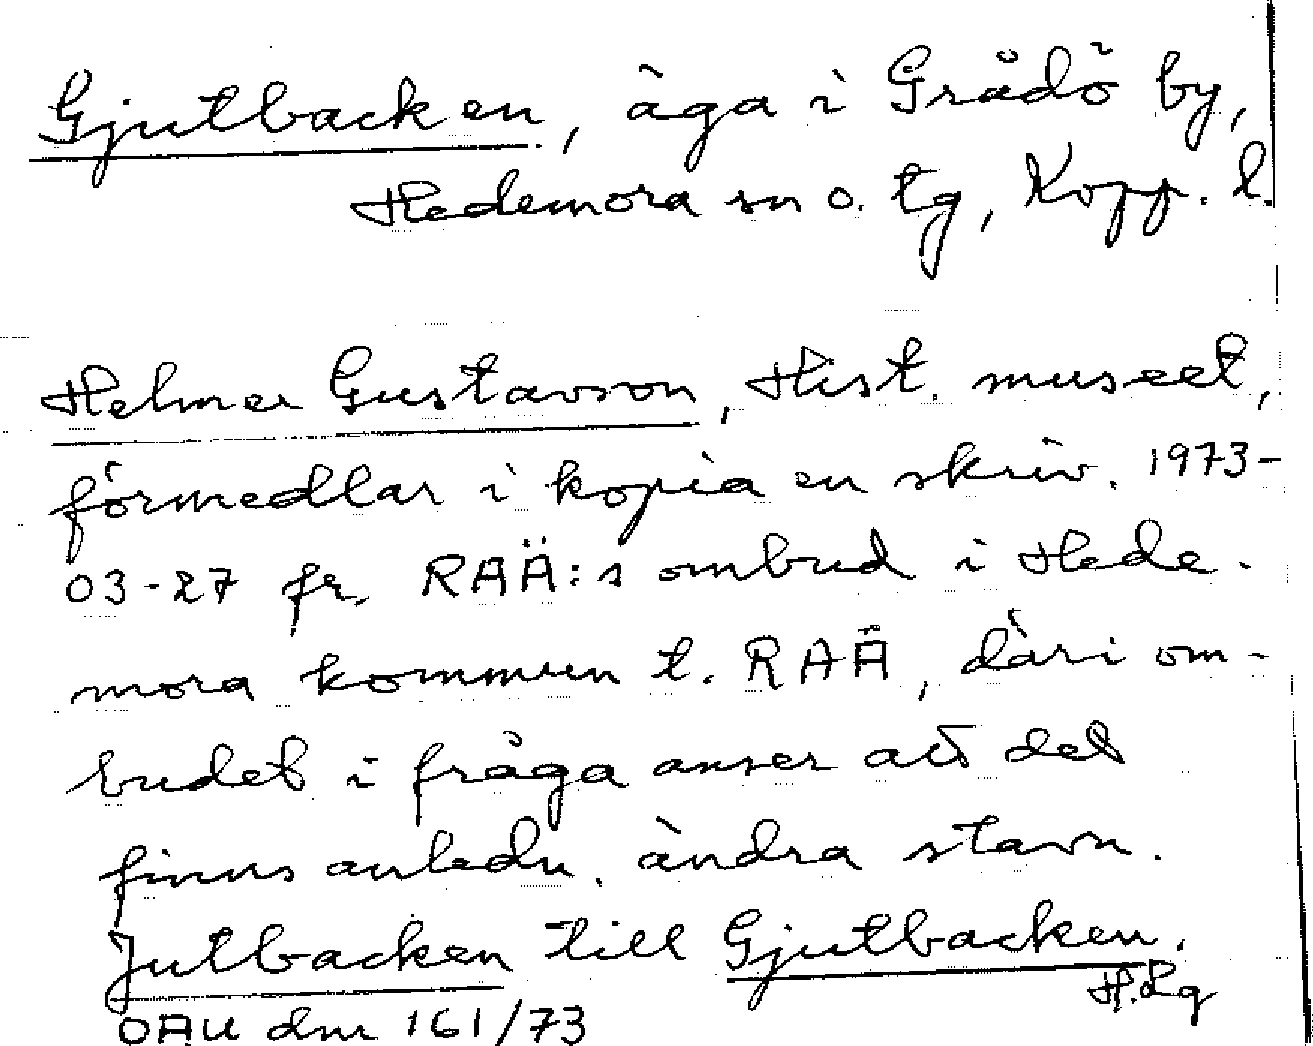 Gjutbacken, äga i Grådö by,
Hedemora sn o. tg, Kopp. l.
Helmer Gustavson, Hist. museet,
förmedlar i kopia en skriv. 1973-
03-27 fr. RAÄ:s ombud i Hede-
mora kommun t. RAÄ, däri om-
budet i fråga anser att det
finns anledn. ändra stavn.
Jutbacken till Gjutbacken.
H.Lg
OAU dnr 161/73